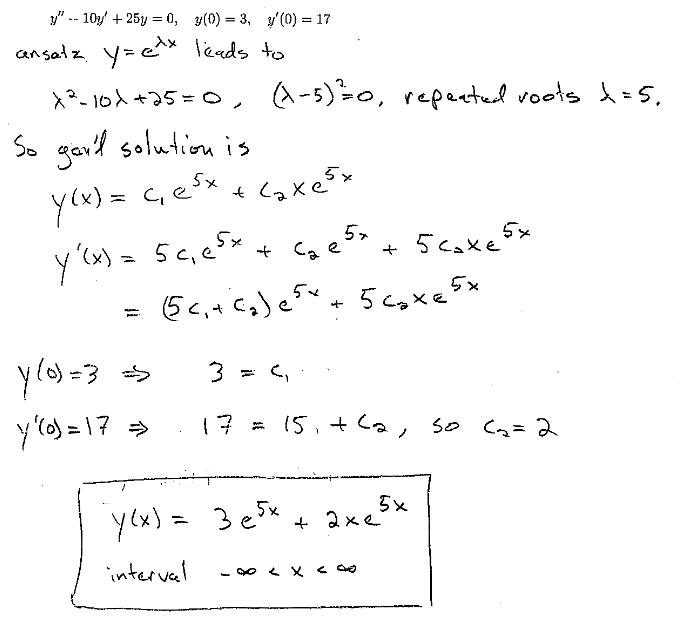 y'' -- 10y' + 25y = 0, y(0) = 3, y'(0) = 17
ansatz y = e^{λx} leads to
λ² - 10λ + 25 = 0, (λ-5)² = 0, repeated roots λ = 5.
So gen'l solution is
y(x) = c₁e^{5x} + c₂xe^{5x}
y'(x) = 5c₁e^{5x} + c₂e^{5x} + 5c₂xe^{5x}
= (5c₁ + c₂)e^{5x} + 5c₂xe^{5x}
y(0) = 3 ⇒ 3 = c₁
y'(0) = 17 ⇒ 17 = 15 + c₂, so c₂ = 2
y(x) = 3e^{5x} + 2xe^{5x}
interval -∞ < x < ∞